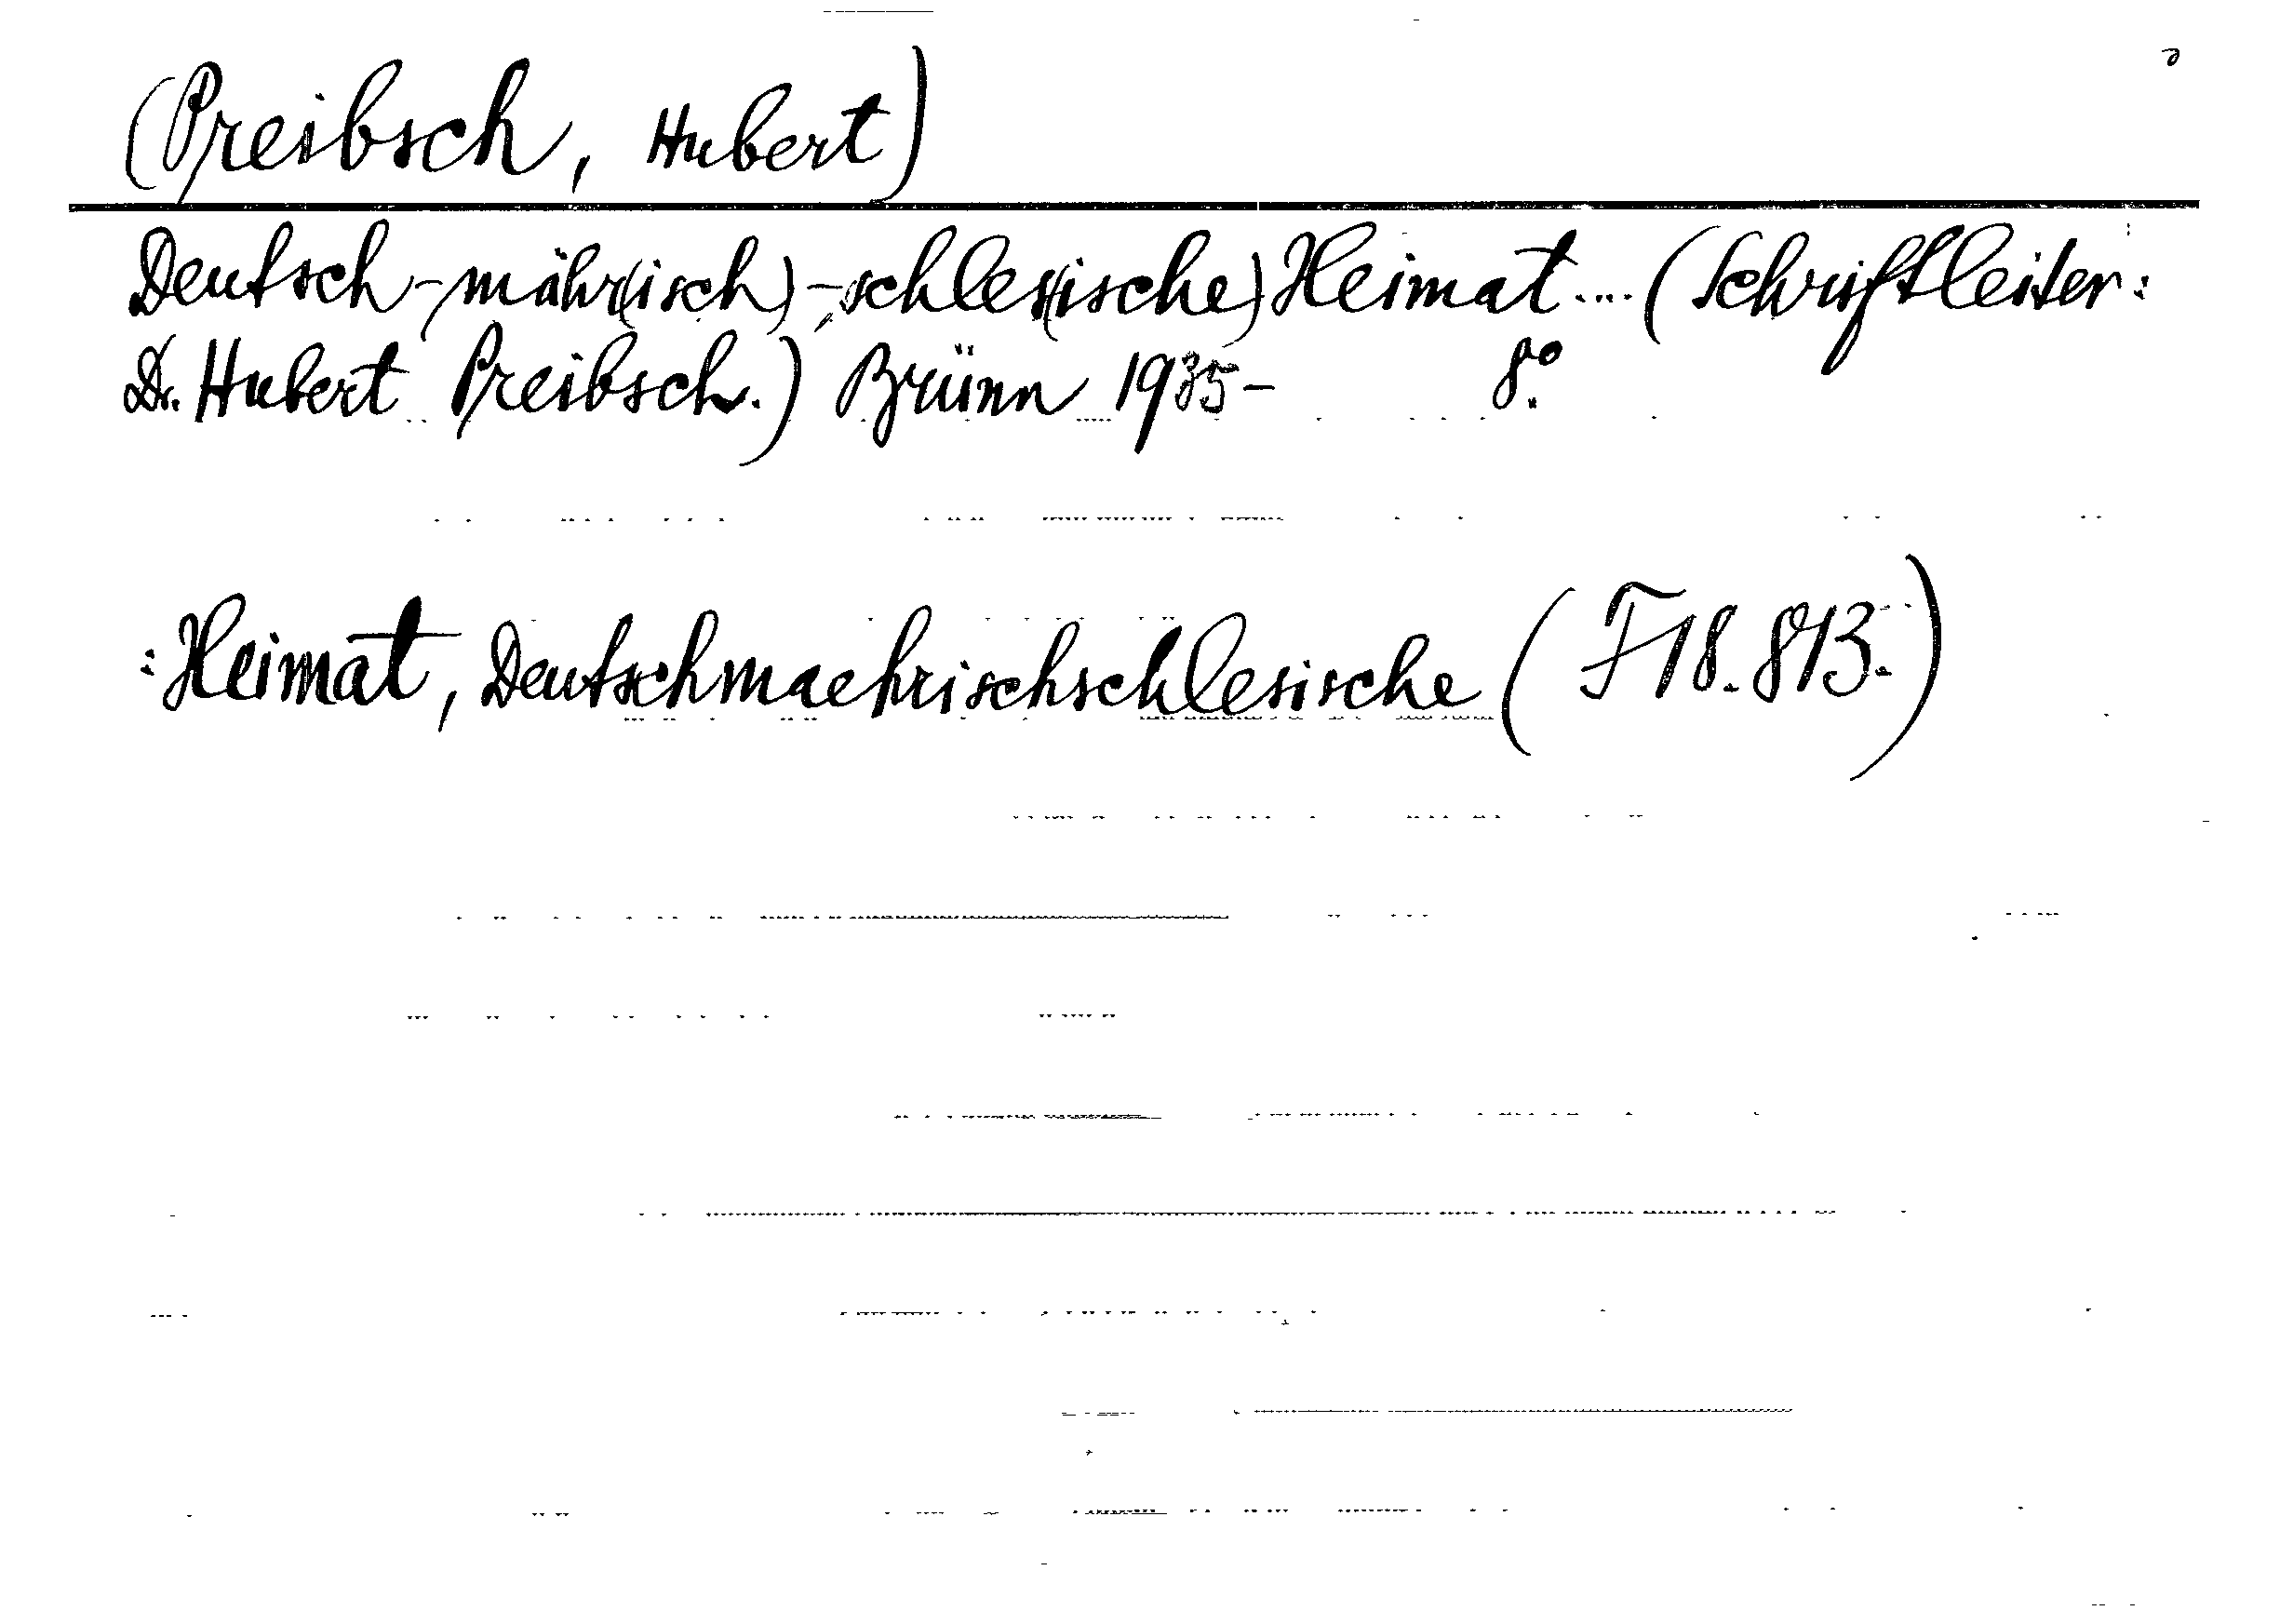 (Preibsch, Hubert)
Deutsch-mähr(isch)-schles(ische) Heimat.... (Schriftleiter:
Dr. Hubert Preibsch.) Brünn 1935- 8°.
:Heimat, Deutschmaehrischschlesische (F18.813.)